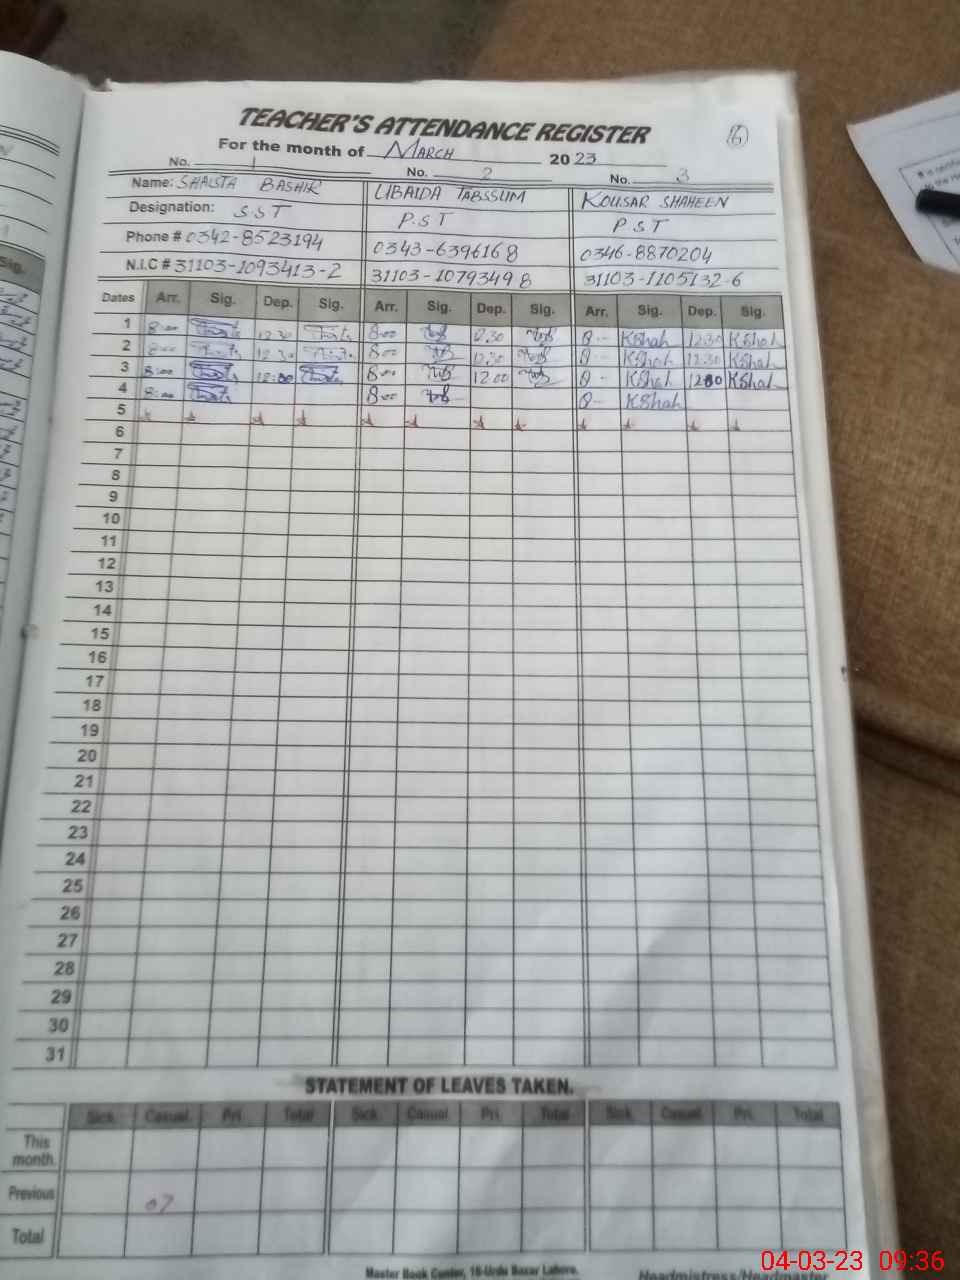 TEACHER'S ATTENDANCE REGISTER
16
For the month of MARCH 2023
No. 1 No. 2 No. 3
Name: SHAISTA BASHIR UBAIDA TABSSUM KOUSAR SHAHEEN
Designation: S.S.T P.S.T P.S.T
Phone # 0342-8523194 0343-6396168 0346-8870204
N.I.C # 31103-1093413-2 31103-1079349-8 31103-1105132-6
Dates Arr. Sig. Dep. Sig. Arr. Sig. Dep. Sig. Arr. Sig. Dep. Sig.
1 8:00 12:30 8:00 12:30 8 KShah 12:30 KShah
2 8:00 12:30 8:00 12:30 8 KShah 12:30 KShah
3 8:00 12:00 8:00 12:00 8 KShah 12:00 KShah
4 8:00 8:00 8 KShah
5
6
7
8
9
10
11
12
13
14
15
16
17
18
19
20
21
22
23
24
25
26
27
28
29
30
31
STATEMENT OF LEAVES TAKEN.
Sick. Casual. Pri. Total Sick. Casual. Pri. Total Sick. Casual. Pri. Total
This
month.
Previous 07
Total
Master Book Center, 16-Urdu Bazar Lahore.
Headmistress/Headmaster
04-03-23 09:36